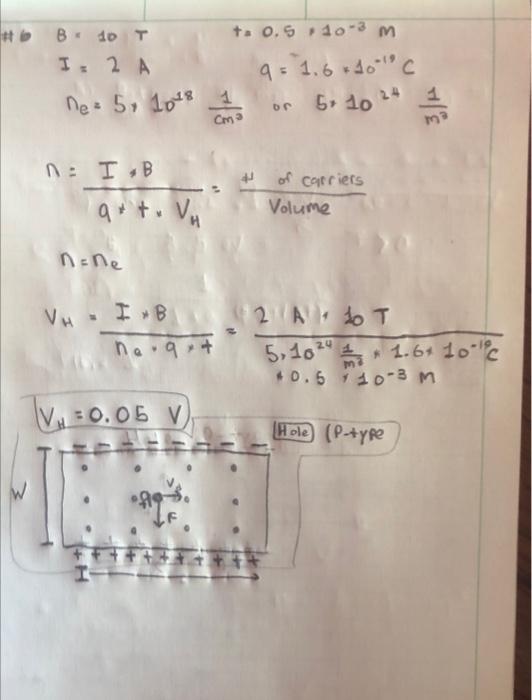 #6 B = 10 T t = 0.5 * 10^-3 m
I = 2 A q = 1.6 * 10^-19 C
ne = 5 * 10^18 1/cm³ or 5 * 10^24 1/m³
n = I * B / q * t * VH = # of carriers / Volume
n = ne
VH = I * B / ne * q * t = 2 A * 10 T / 5 * 10^24 1/m³ * 1.6 * 10^-19 C * 0.5 * 10^-3 m
VH = 0.05 V
Hole (P-type
- - - - - - - - -
V
W
F
+ + + + + + + + + + +
I